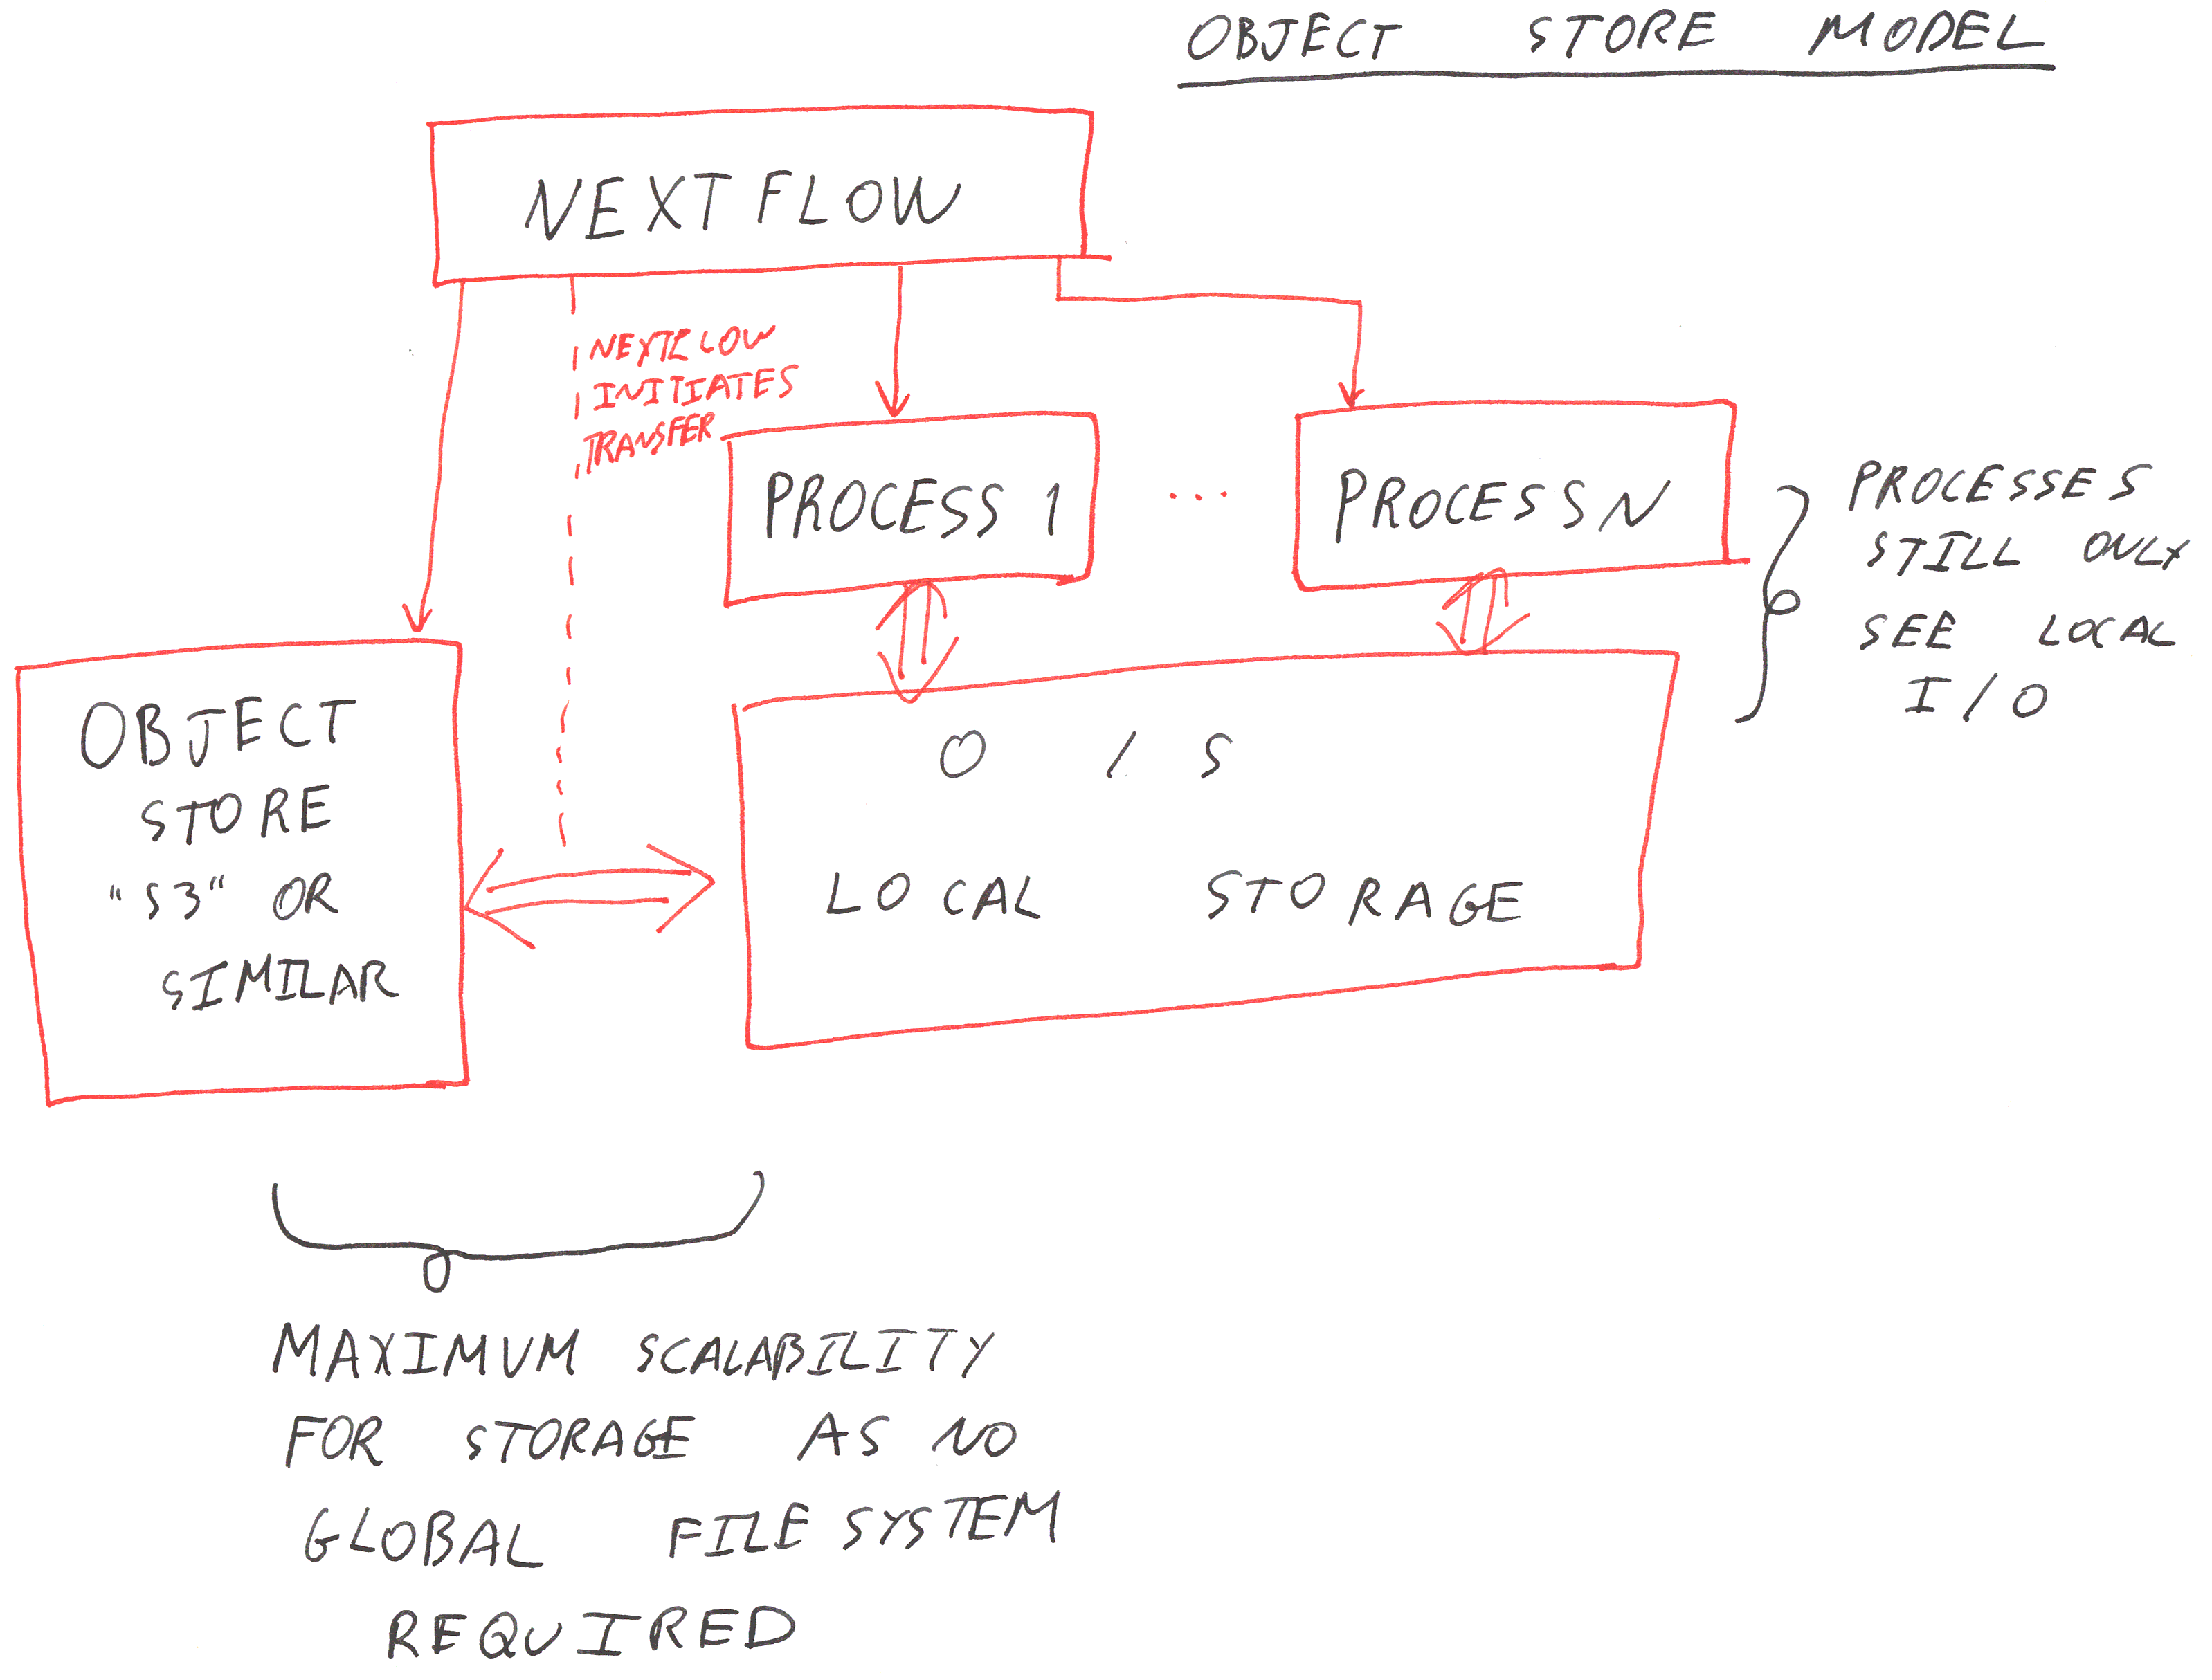 OBJECT STORE MODEL
NEXTFLOW
NEXTFLOW
INITIATES
TRANSFER
PROCESS 1
...
PROCESS N
PROCESSES
STILL ONLY
SEE LOCAL
I/O
OBJECT
STORE
"S3" OR
SIMILAR
O / S
LOCAL STORAGE
MAXIMUM SCALABILITY
FOR STORAGE AS NO
GLOBAL FILE SYSTEM
REQUIRED